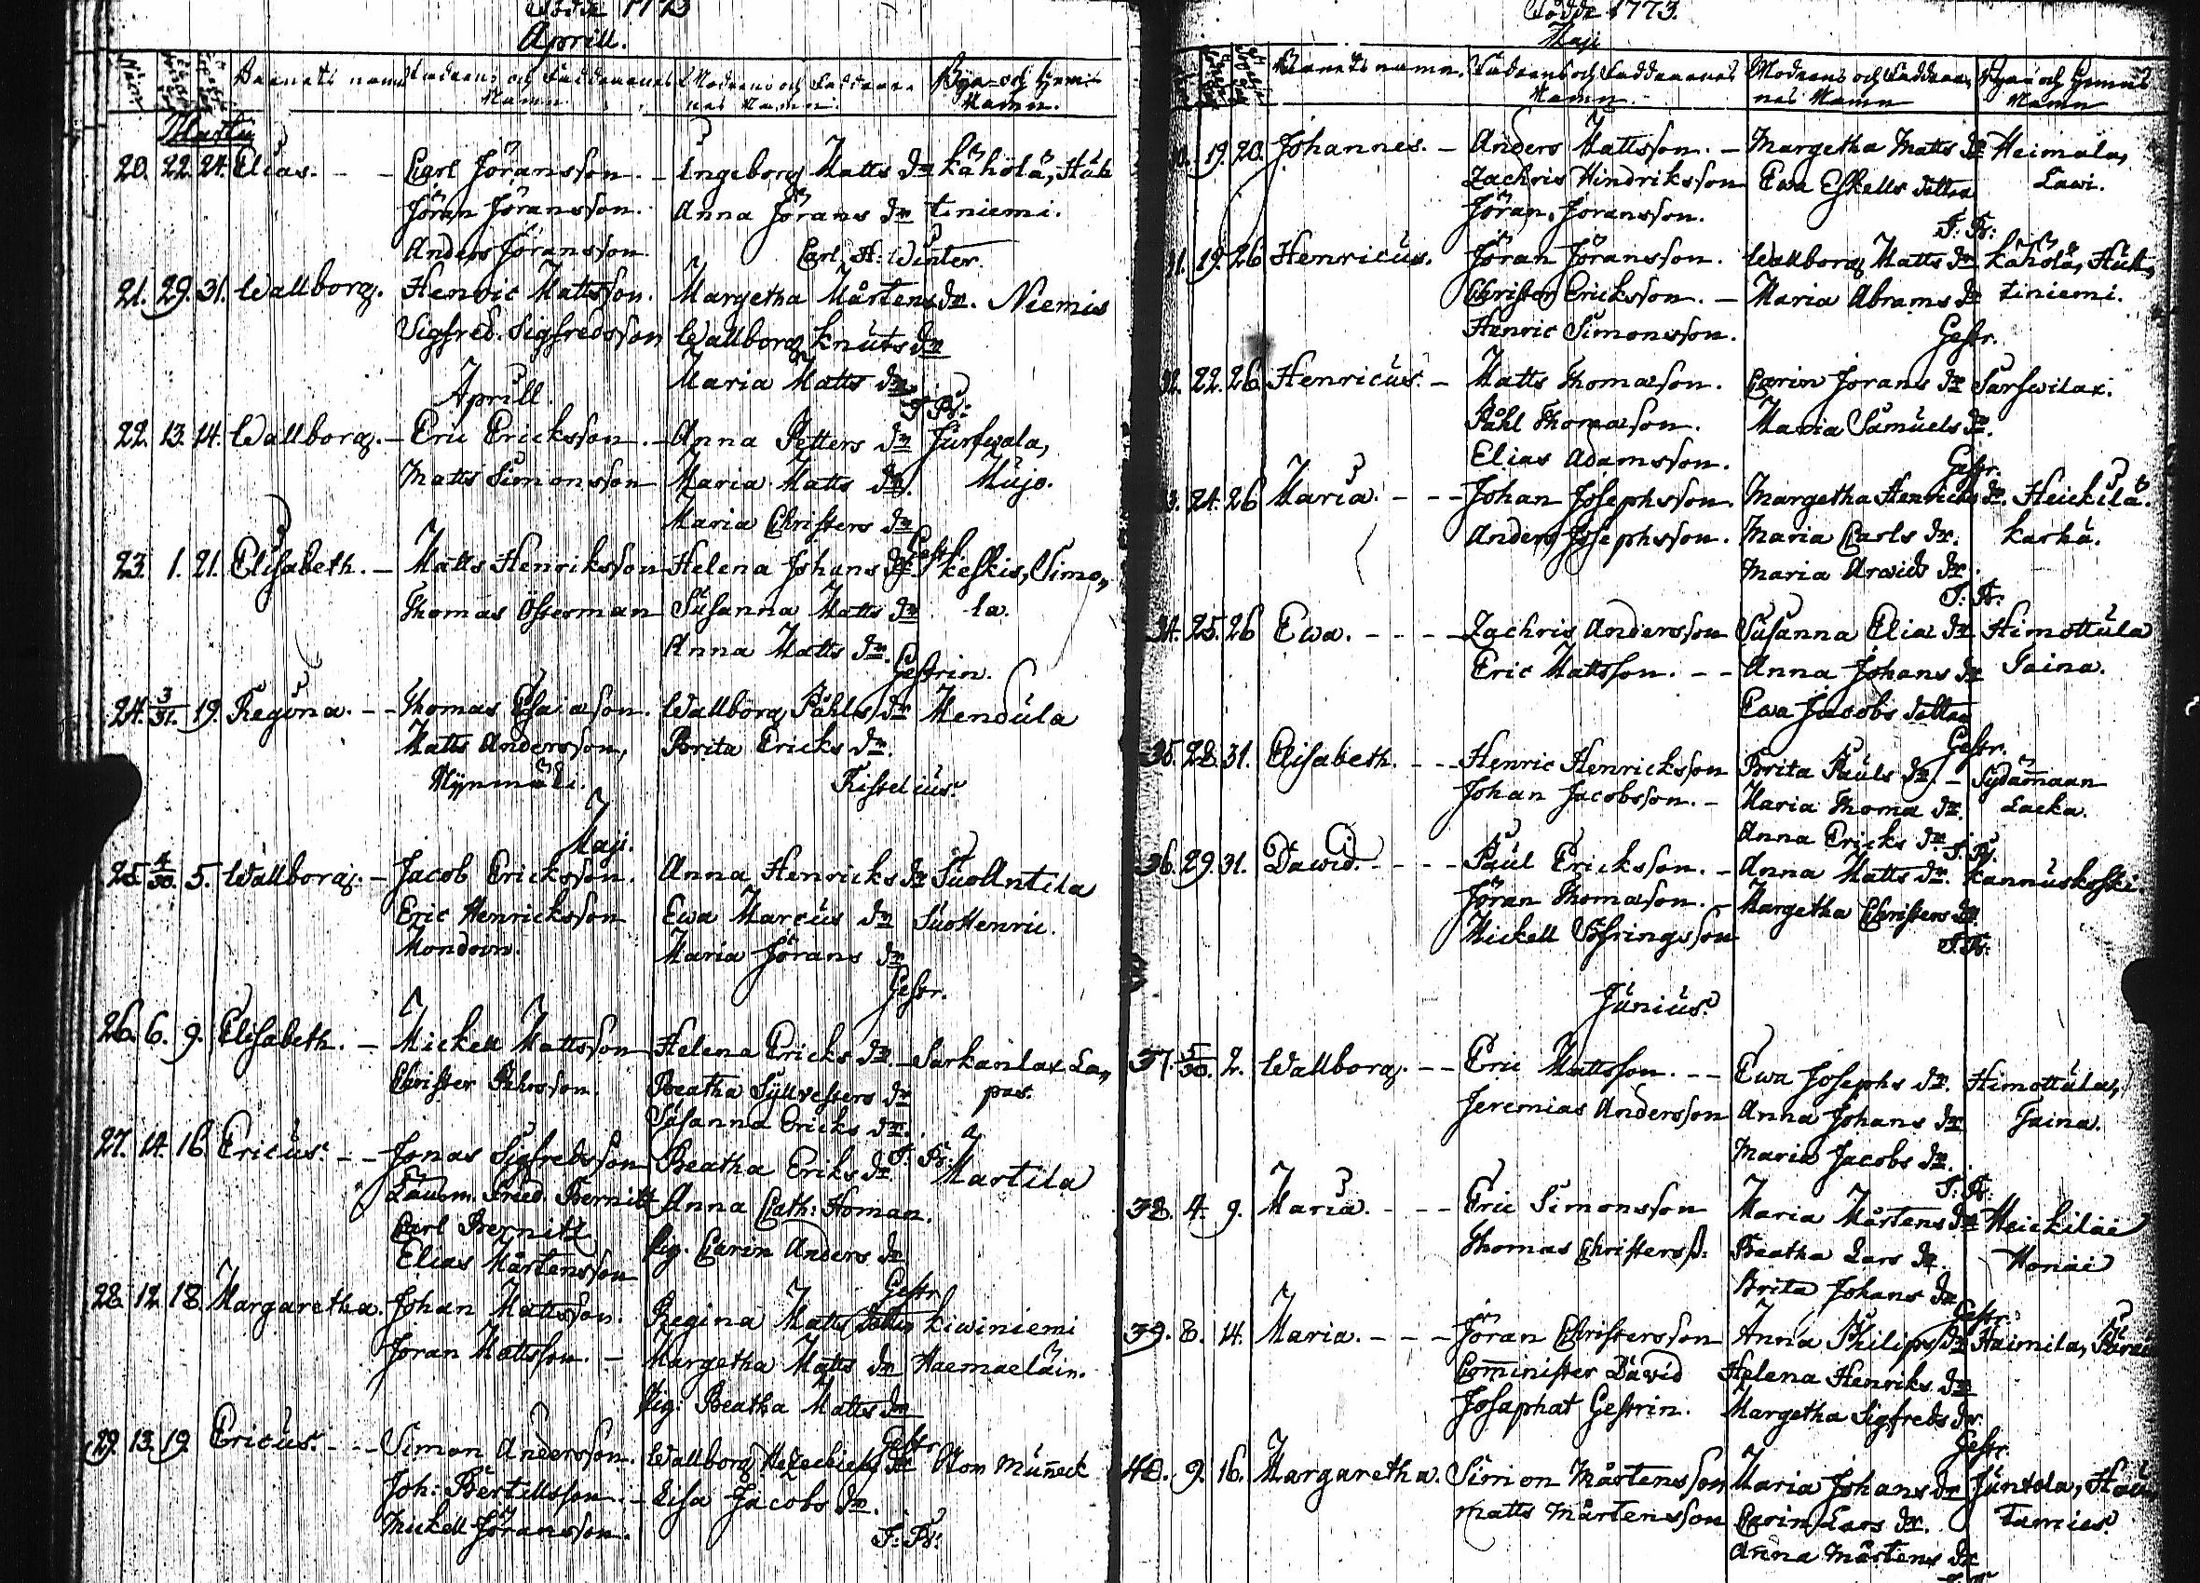 Födde 1773
Aprill.
Barnets namn Fadrens och Faddrarnes Modrens och Faddrar- Bya- och Hem-
Namn nes Namn. Namn.
Martii
20. 22. 24. Elias. - - Carl Jöransson. - Ingeborg Matts dr Kähölä, Huk
Jöran Jöransson. Anna Jörans dr tiniemi.
Anders Jöransson Carl H: Winter.
21. 29. 31. Wallborg. Henric Mattsson. Margetha Mårtens dr. Niemis
Sigfred. Sigfredsson Wallborg Knuts dr
Maria Matts dr
Aprill. T. Pr:
22. 13. 14. Wallborg. - Eric Ericksson. - Anna Petters dr Jurfwala,
Matts Simonsson Maria Matts dr. Mujo.
Maria Christers dr
Gestr.
23. 1. 21. Elisabeth. - Matts Henriksson Helena Johans dr Keskis, Simo,,
Thomas Österman Susanna Matts dr la.
Anna Matts dr.
Gestrin.
24. 3/31. 19. Regina. - - Thomas Esaiasson. Wallborg Påhls dr Mendula
Matts Andersson, Brita Ericks dr.
Mynmäki. Kisselius.
Maji.
25. 4/30. 5. Wallborg. - Jacob Ericksson. Anna Henricks dr SuoAntila
Eric Henricksson Ewa Marcus dr SuoHenric.
Mondoin. Maria Jörans dr
Gestr.
26. 6. 9. Elisabeth. - Mickell Mattsson Helena Ericks dr. - Sarkanlax La,,
Christer Pehrsson. Beatha Syllvesters dr pas.
Susanna Ericks dr.
T. Pr.
27. 14. 16. Ericus. - - Jonas Sigfredsson Beatha Eriks dr Martila
Länsm. Fried. Bernitt Anna Cath: Homan.
Carl Bernitt Pig. Carin Anders dr
Elias Mårtensson
Gestr
28. 12. 18. Margaretha. Johan Mattsson. Regina Matts dotter Kiwiniemi
Jöran Mattsson. - Margetha Matts dr Haemaeläin.
Pig: Beatha Matts dr
Gestr
29. 13. 19. Ericus. - - Simon Andersson. Wallborg Hezechiels dr Nom Muneck
Joh: Bertillsson. - Lisa Jacobs dr.
Mickell Jöransson. T: Pr:
Födde 1773.
Maji
Barnets namn. Fadrens och Faddrarnes Modrens och Faddrar- Byars och Hemmans
Namn. nes Namn Namn
19. 20. Johannes. - Anders Mattsson. - Margetha Matts dr Heimala,
Zachris Hindriksson Ewa Eskells dotter Lawi.
Jöran Joransson. T. Pr:
31. 19. 26 Henricus. Jöran Jöransson. Wallborg Matts dr Kähölä, Huk,,
Christer Ericksson. - Maria Abrams dr tiniemi.
Henric Simonsson. Gestr.
32. 22. 26. Henricus. - Matts Thomasson. Carin Jorans dr Sarfwilax.
Påhl Thomasson. Maria Samuels dr.
Elias Adamsson. Gestr.
33. 24. 26 Maria. - - - Johan Josephsson. Margetha Henricks dr. Heickilä.
Anders Josephsson. Maria Carls dr. Karhä.
Maria Arwids dr.
T. Pr:
34. 25. 26 Ewa. - - - - Zachris Andersson Susanna Eliæ dr Himottula
Eric Mattsson. - - Anna Johans dr Taina.
Ewa Jacobs dotter
Gestr.
35. 28. 31. Elisabeth. - - Henric Henricksson Brita Pauls dr. - Sydämaan
Johan Jacobsson. - Maria Thoma dr. Laeka.
Anna Ericks dr
T. Pr.
36. 29. 31. Dawid. - - - - Paul Ericksson. - Anna Matts dr. Kannuskoski.
Jöran Thomasson. - Margetha Christers dr.
Mickell Söfringsson T. Pr:
Junius.
37. 5/30. 2. Wallborg. - - Eric Mattsson. - - Ewa Josephs dr. Himottula,
Jeremias Andersson Anna Johans dr Taina.
Maria Jacobs dr.
T. Pr:
38. 4. 9. Maria. - - - Eric Simonsson Maria Mårtens dr Heickiläi
Thomas Christerss: Beatha Lars dr. Honiai
Brita Johans dr
Gestr:
39. 8. 14. Maria. - - - Jöran Christersson Anna Philips dr Haimila,
Cominister David Helena Henriks dr
Josaphat Gestrin. Margetha Sigfreds dr
Gestr.
40. 9. 16. Margaretha. Simon Mårtensson Maria Johans dr Juntola, Hau
Matts Mårtensson Carin Lars dr. tamies.
Anna Mårtens dr